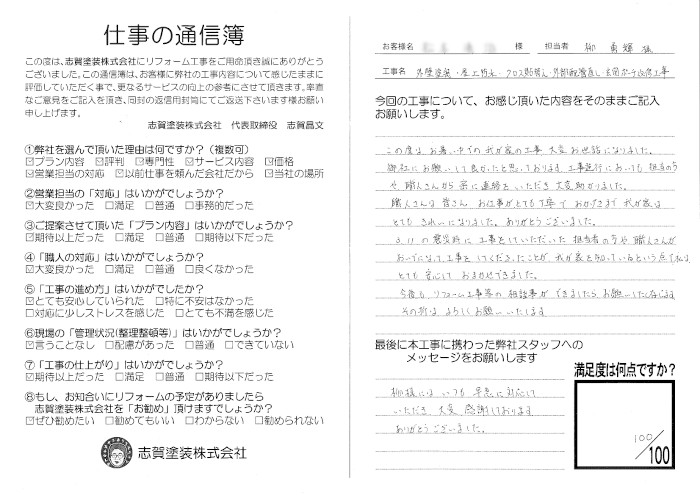 仕事の通信簿
この度は、志賀塗装株式会社にリフォーム工事をご用命頂き誠にありがとう
ございました。この通信簿は、お客様に弊社の工事内容について感じたままに
評価していただく事で、更なるサービスの向上の参考にさせて頂きます。率直
なご意見をご記入を頂き、同封の返信用封筒にてご返送下さいます様お願い
申し上げます。
志賀塗装株式会社 代表取締役 志賀晶文
①弊社を選んで頂いた理由は何ですか？（複数可）
☑プラン内容 ☑評判 ☑専門性 ☑サービス内容 ☑価格
☑営業担当の対応 ☑以前仕事を頼んだ会社だから ☑当社の場所
②営業担当の「対応」はいかがでしょうか？
☑大変良かった □満足 □普通 □事務的だった
③ご提案させて頂いた「プラン内容」はいかがでしょうか？
☑期待以上だった □満足 □普通 □期待以下だった
④「職人の対応」はいかがでしょうか？
☑大変良かった □満足 □普通 □良くなかった
⑤「工事の進め方」はいかがでしたか？
☑とても安心していられた □特に不安はなかった
□対応に少しストレスを感じた □とても不満を感じた
⑥現場の「管理状況(整理整頓等)」はいかがでしょうか？
☑言うことなし □配慮があった □普通 □できていない
⑦「工事の仕上がり」はいかがでしょうか？
☑期待以上だった □満足 □普通 □期待以下だった
⑧もし、お知合いにリフォームの予定がありましたら
志賀塗装株式会社を「お勧め」頂けますでしょうか？
☑ぜひ勧めたい □勧めてもいい □わからない □勧められない
志賀塗装株式会社
お客様名 様 担当者 柳 勇輝 様
工事名 外壁塗装・屋上防水・クロス貼替え・外部配管直し・玄関ポーチ改修工事
今回の工事について、お感じ頂いた内容をそのままご記入
お願いします。
この度は、お暑い中での我が家の工事、大変お世話になりました。
御社にお願いして良かったと思っております。工事進行においても、担当の方
や、職人さんから常に連絡をいただき大変助かりました。
職人さんは皆さん、お仕事がとても丁寧で、おかげさまで我が家は
とてもきれいになりました。ありがとうございました。
3.11の震災時に工事をしていただいた担当者の方や職人さんが
おいでになって、工事をしてくださったことが、我が家を知っているという点で
とても安心しておまかせできました。
今後も、リフォーム工事等の相談事ができましたらお願いしたい
その折はよろしくお願いいたします
最後に本工事に携わった弊社スタッフへの
メッセージをお願いします
柳様にはいつも早急に対応して
いただき、大変感謝しております
ありがとうございました。
満足度は何点ですか？
100
/100